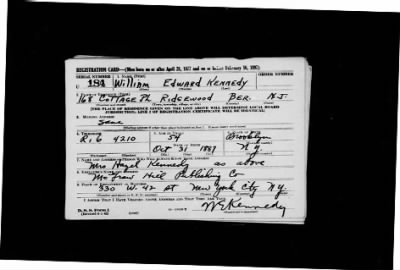 REGISTRATION CARD—(Men born on or after April 28, 1877 and on or before February 16, 1897)
SERIAL NUMBER 1. NAME (Print) ORDER NUMBER
U 184 William Edward Kennedy
2. PLACE OF RESIDENCE (Print)
168 Cottage Pl Ridgewood Ber. N.J.
[THE PLACE OF RESIDENCE GIVEN ON THE LINE ABOVE WILL DETERMINE LOCAL BOARD
JURISDICTION; LINE 2 OF REGISTRATION CERTIFICATE WILL BE IDENTICAL]
3. MAILING ADDRESS
Same
4. TELEPHONE 5. AGE IN YEARS 6. PLACE OF BIRTH
Ri 6 4210 54 Brooklyn
DATE OF BIRTH
Oct 31 1887 N.Y.
7. NAME AND ADDRESS OF PERSON WHO WILL ALWAYS KNOW YOUR ADDRESS
Mrs Hazel Kennedy as above
8. EMPLOYER'S NAME AND ADDRESS
McGraw Hill Publishing Co
9. PLACE OF EMPLOYMENT OR BUSINESS
330 W. 42 St New York City N.Y.
I AFFIRM THAT I HAVE VERIFIED ABOVE ANSWERS AND THAT THEY ARE TRUE.
D. S. S. Form 1 W E Kennedy